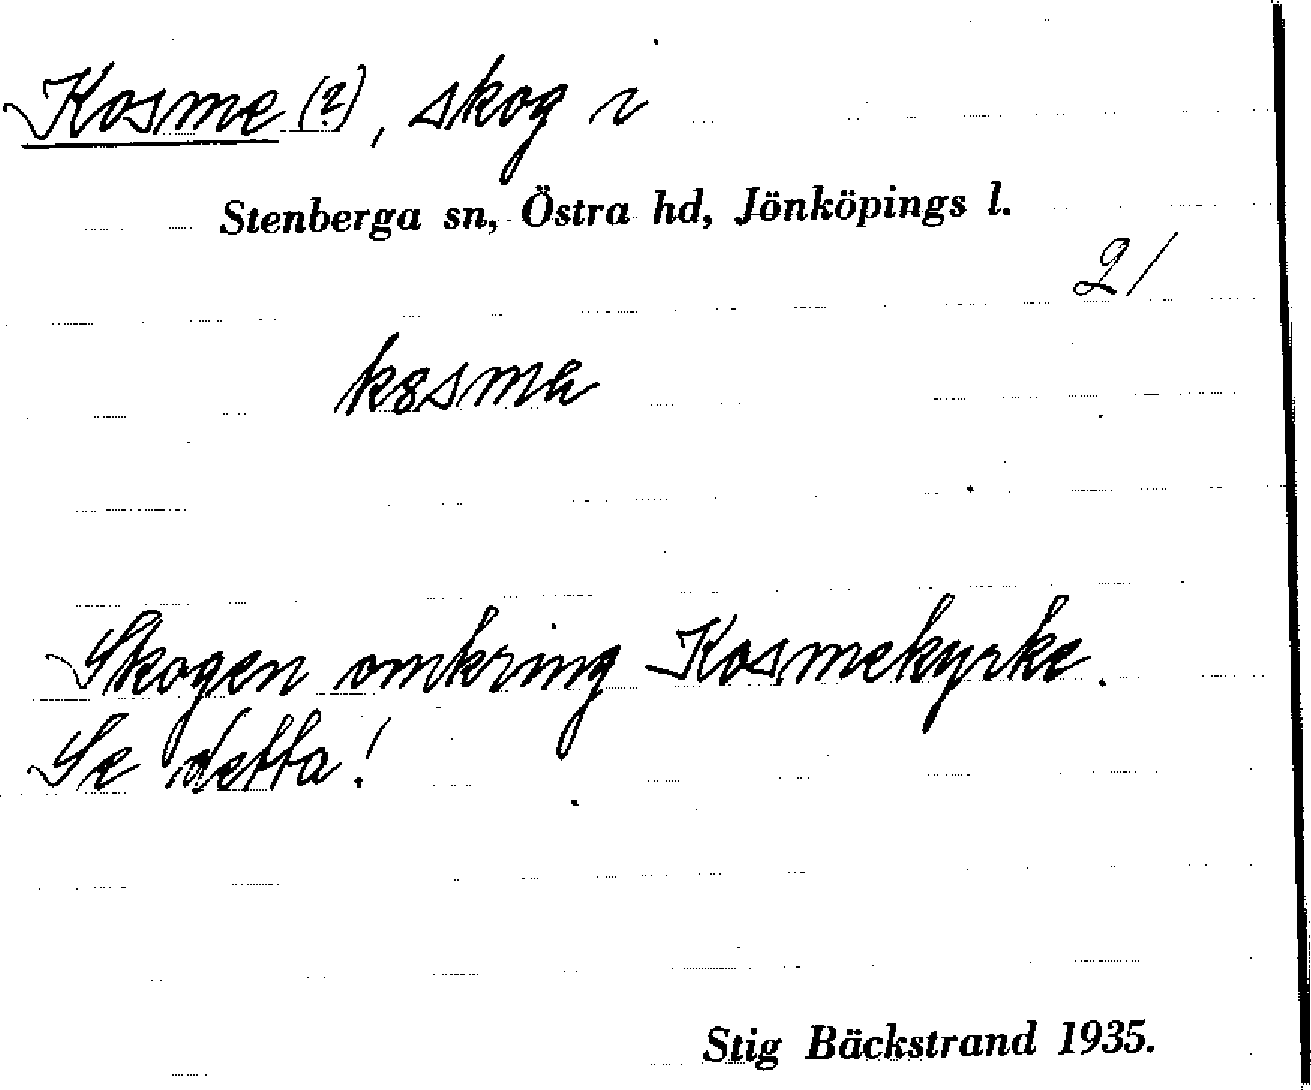 Kosme (?), skog i
Stenberga sn, Östra hd, Jönköpings l.
2/
Skogen omkring Kosmekyrke.
Se detta!
Stig Bäckstrand 1935.